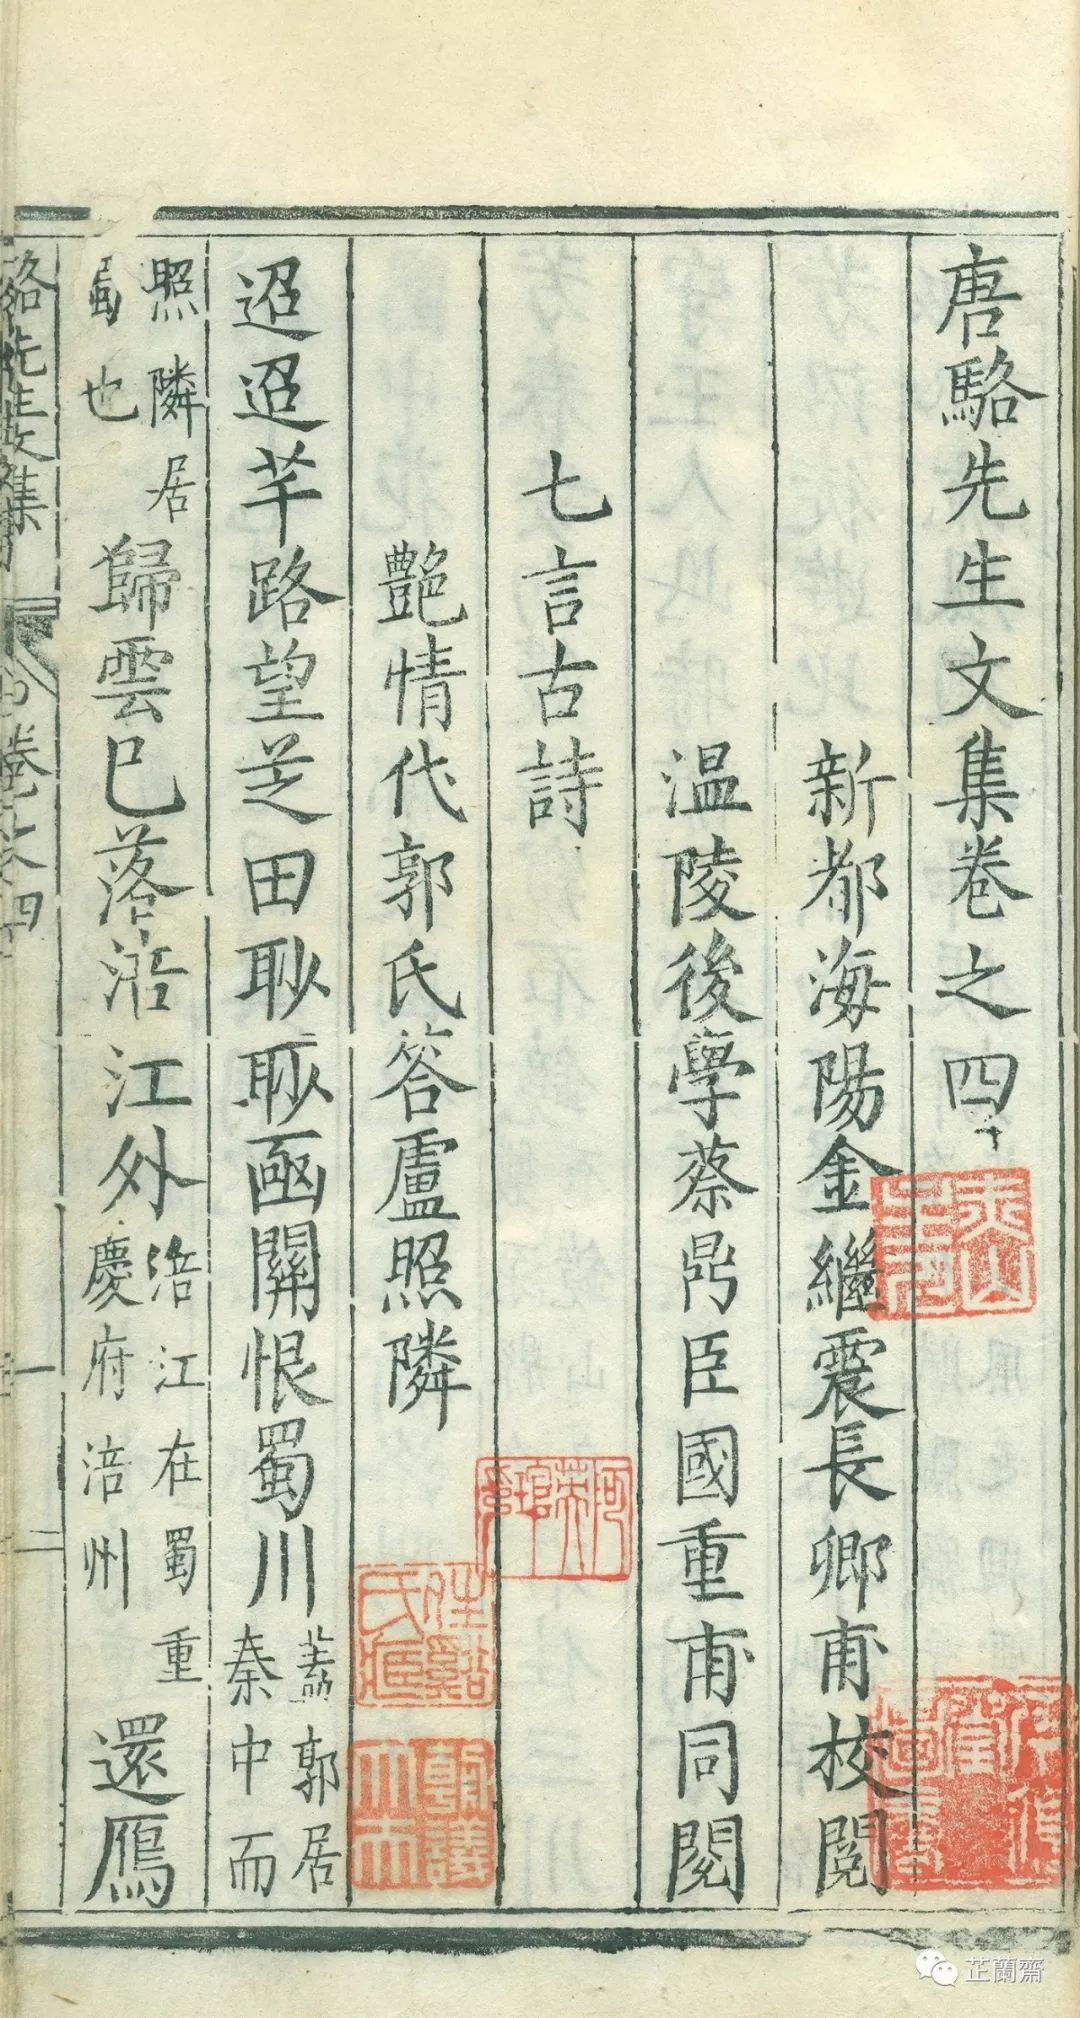 唐駱先生文集卷之四
新都海陽金繼震長卿甫校閱
温陵後學蔡鼎臣國重甫同閱
七言古詩
艷情代郭氏答盧照隣
迢迢芊路望芝田眇眇函關恨蜀川蓋郭居秦中而
照隣居蜀也歸雲已落涪江外涪江在蜀重慶府涪州還鴈
駱先生文集
卷之四
芷蘭齋